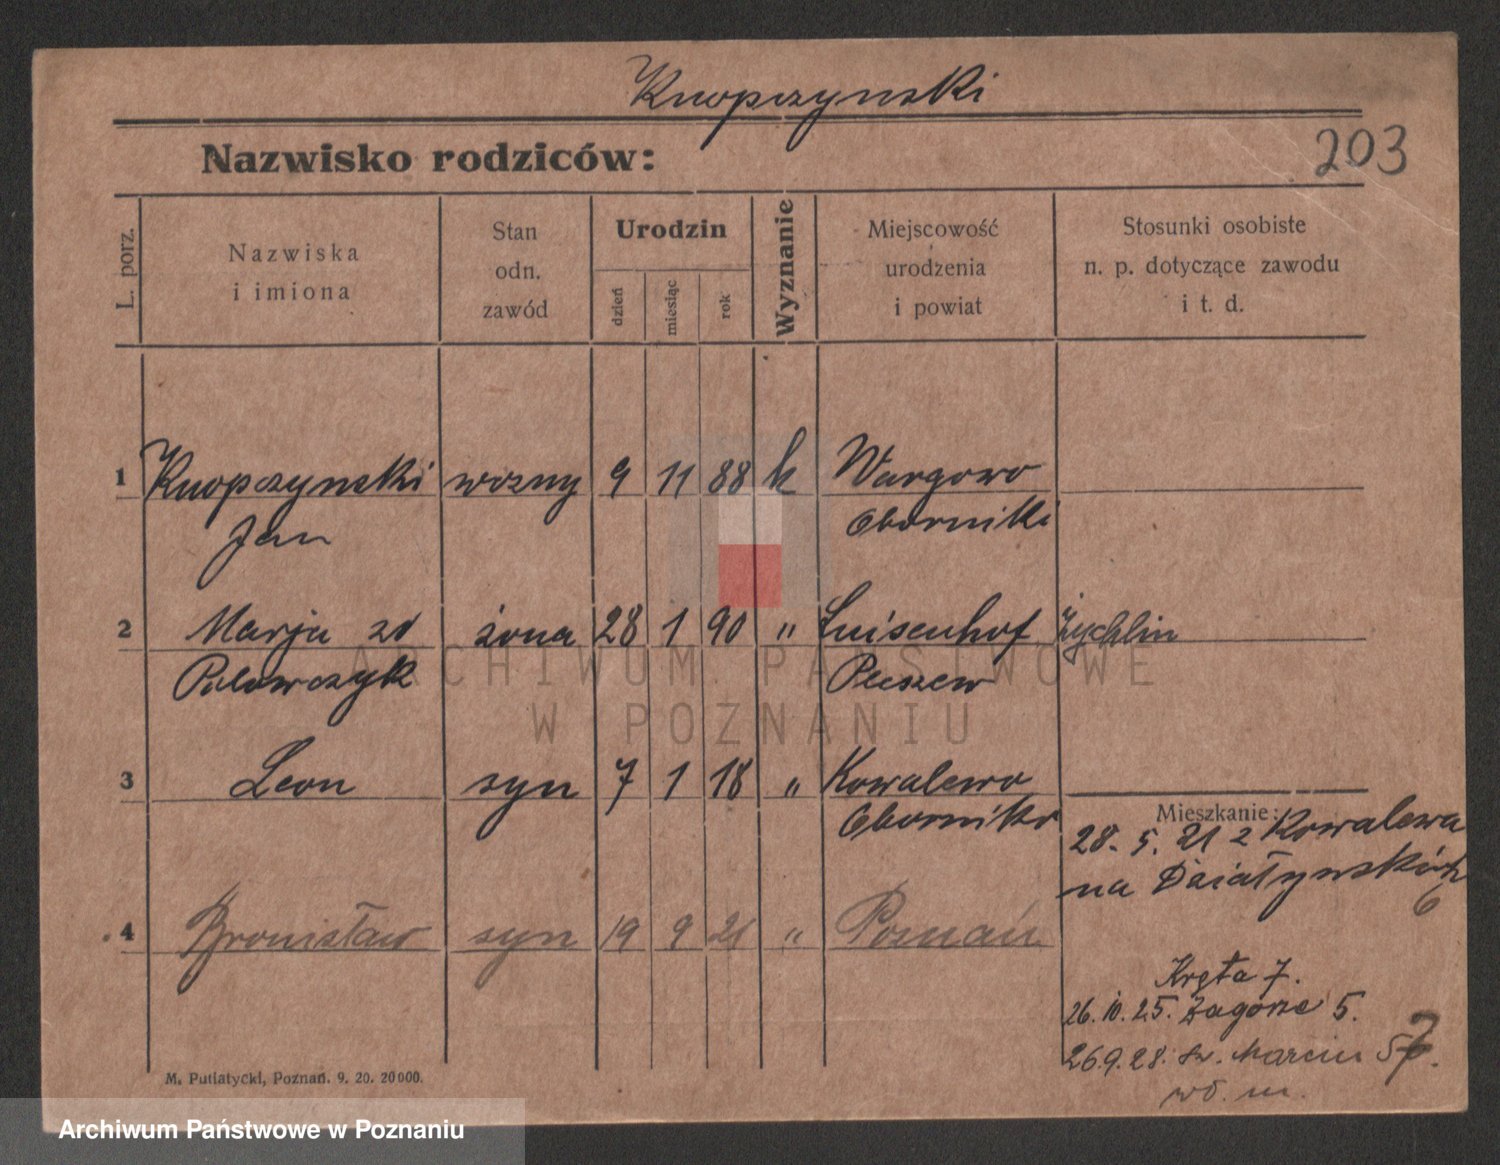 Knopczynski
203
Nazwisko rodziców:
L. porz.
Nazwiska
i imiona
Stan
odn.
zawód
Urodzin
dzień
miesiąc
rok
Wyznanie
Miejscowość
urodzenia
i powiat
Stosunki osobiste
n. p. dotyczące zawodu
i t. d.
1 Knopczynski woźny 9 11 88 k Wargowo
Jan Oborniki
2 Marja zd żona 28 1 90 " Luisenhof Żychlin
Pilowczyk Pleszew
3 Leon syn 7 1 18 " Kowalewo
Oborniki
Mieszkanie:
28. 5. 21 z Kowalewa
na Działyńskich
6
4 Bronisław syn 19 9 21 " Poznań
Kręta 7.
26. 10. 25. Zagórze 5.
26.9.28. Św. Marcin 57.
wł. m.
M. Putiatycki, Poznań. 9. 20. 20000.
ARCHIWUM PAŃSTWOWE
W POZNANIU
Archiwum Państwowe w Poznaniu